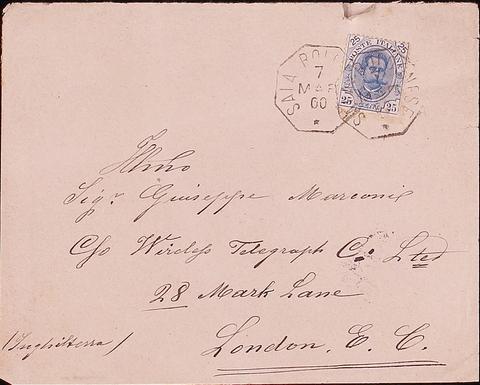 SALA BOLOGNESE
7
MAR
00
25 25
POSTE ITALIANE
25 25
Illmo
Sigr Guiseppe Marconi
C/o Wireless Telegraph Co. Lted
28 Mark Lane
London. E. C.
(Inghilterra)